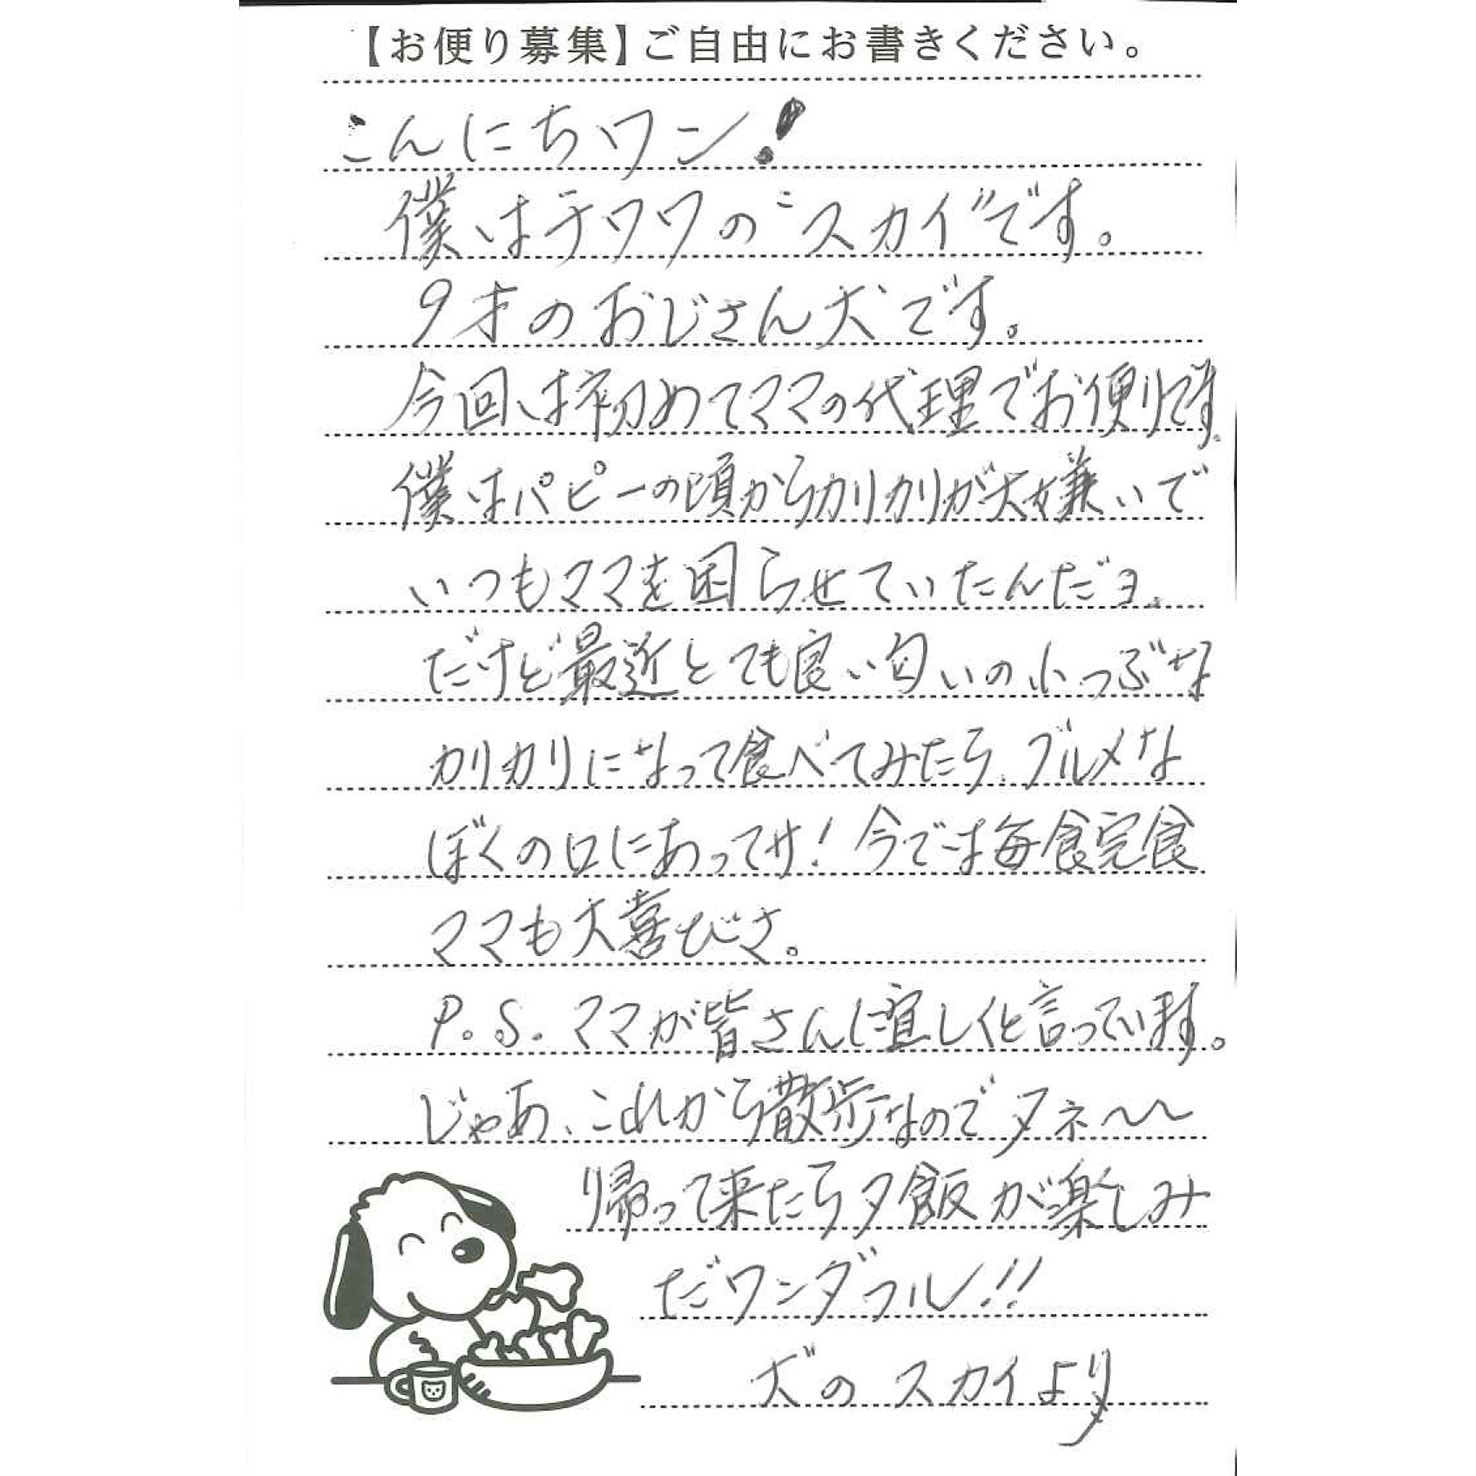 【お便り募集】ご自由にお書きください。
こんにちワン!
僕はチワワの"スカイ"です。
9才のおじさん犬です。
今回は初めてママの代理でお便りです。
僕はパピーの頃からカリカリが大嫌いで
いつもママを困らせていたんだョ。
だけど最近とても良い匂いの小つぶな
カリカリになって食べてみたら、グルメな
ぼくの口にあってサ!今では毎食完食
ママも大喜びさ。
P.S.ママが皆さんに宜しくと言っています。
じゃあ、これから散歩なのでタネ〜〜
帰って来たら夕飯が楽しみ
だワンダフル!!
犬のスカイより